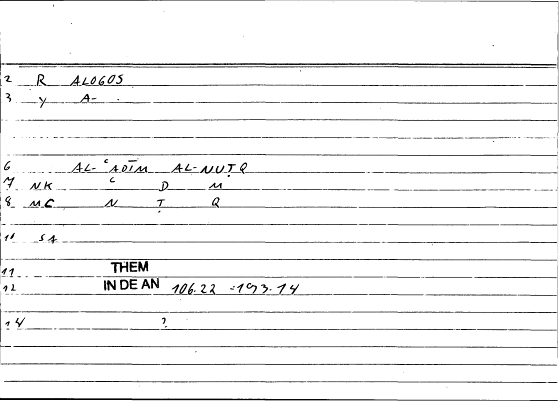 2 R ALOGOS
3 y A-
6 AL-ʿADĪM AL-NUṬQ
7 NK ʿ D M
8 MC N Ṭ Q
10 SA
11 THEM
12 IN DE AN 106.22 =193.14
14 ?